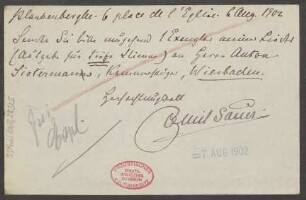 Blankenberghe. 6 place de l'Eglise. 6 Aug. 1902
Senden Sie bitte umgehend 1 Exemplar meiner Lieder
(Ausgabe für tiefe Stimme) an Herrn Anton
Sistermanns, Kammersänger, Wiesbaden.
Hochachtungsvoll
Emil Sauer
Frei
Expl.
7 AUG 1902